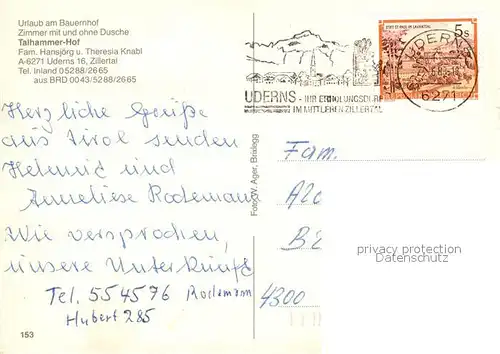 Urlaub am Bauernhof
Zimmer mit und ohne Dusche
Talhammer-Hof
Fam. Hansjörg u. Theresia Knabl
A-6271 Uderns 16, Zillertal
Tel. Inland 05288/2665
aus BRD 0043/5288/2665
5s
UDERNS
6271
UDERNS - IHR ERHOLUNGSDORF
IM MITTLEREN ZILLERTAL
Herzliche Grüße
aus Tirol senden
Helmut und
Anneliese Rodemann
Wie versprochen,
unsere Unterkunft
Tel. 554576 Rodemann
Hubert 285
Foto: W. Ager, Brixlegg
Fam.
4300
153
privacy protection
for AK-Ansichtskarten.de